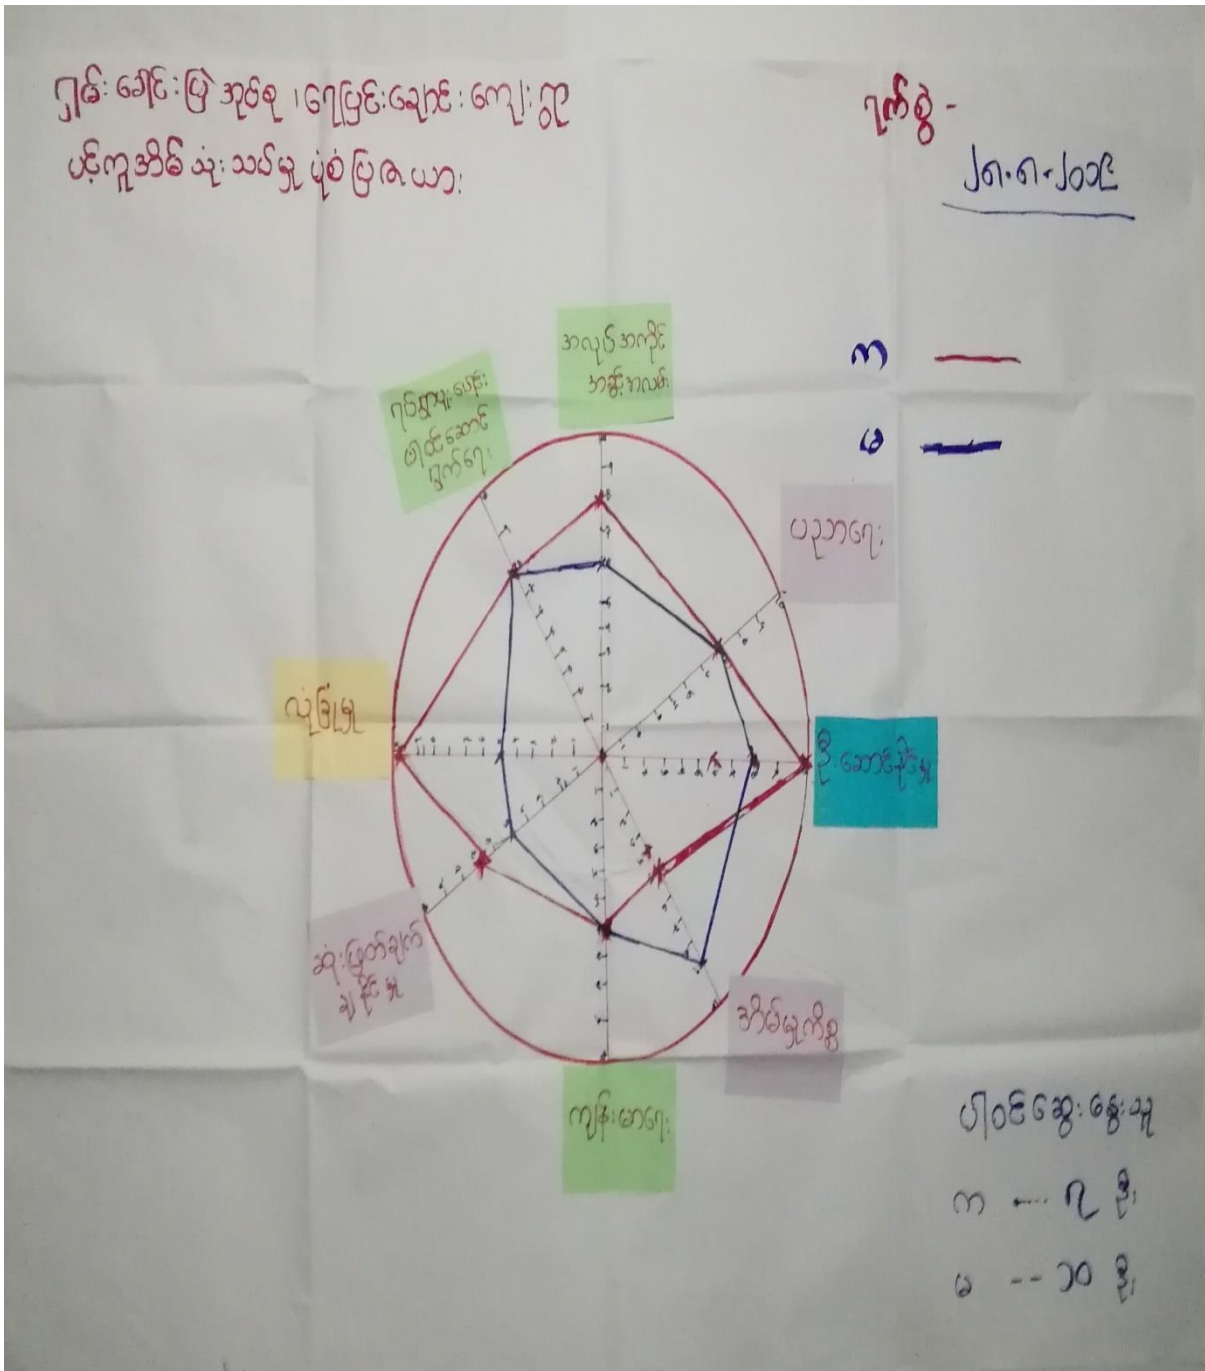 ရှမ်းခေါင်းပြဲအုပ်စု ၊ ရေပြင်းချောင်းကျေးရွာ
ပင့်ကူအိမ်သုံးသပ်မှုပုံစံပြဇယား
ရက်စွဲ -
၂၈.၈.၂၀၁၉
က
မ
အလုပ်အကိုင်
အခွင့်အလမ်း
ရပ်ရွာလူ့ပေါင်း
ပါဝင်ဆောင်
ရွက်ရေး
ပညာရေး
လုံခြုံမှု
ဦးဆောင်နိုင်မှု
ဆုံးဖြတ်ချက်
ချနိုင်မှု
အိမ်မှုကိစ္စ
ကျန်းမာရေး
ပါဝင်ဆွေးနွေးသူ
က ---- ၇ ဦး
မ -- ၁၀ ဦး